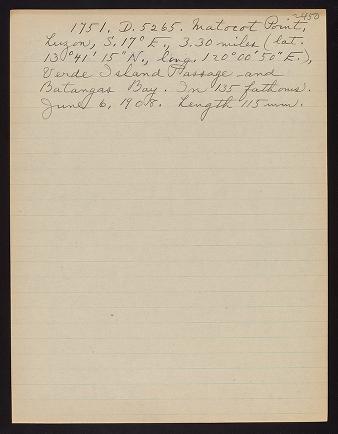 2450
1751. D. 5265. Matocot Point,
Luzon, S. 17° E., 3.30 miles (lat.
13°41'15"N., long. 120°00'50"E.),
Verde Island Passage and
Batangas Bay. In 135 fathoms.
June 6, 1908. Length 115 mm.